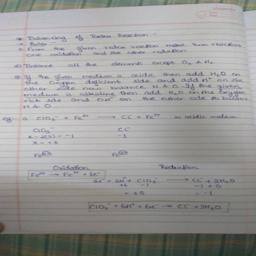 Balancing of Redox Reaction :-
Rules
From the given redox reaction make two reactions
one oxidation and the other reduction.
Balance all the elements except O₂ & H₂
If the given medium is acidic then add H₂O on
the oxygen deficient side and add H⁺ on the
other side now balance H & O. If the given
medium is alkaline then add H₂O on the oxygen
rich side and OH⁻ on the other side to balance
H & O
ClO₃⁻ + Fe²⁺ → Cl⁻ + Fe³⁺ in acidic medium
ClO₃⁻ Cl⁻
x - 2(3) = -1 -1
x = +5
Oxidation Reduction
Fe²⁺ → Fe³⁺ + 1e⁻
+ ClO₃⁻ → Cl⁻ + 3H₂O
= +5 = -1
ClO₃⁻ + 6H⁺ + 6e⁻ → Cl⁻ + 3H₂O